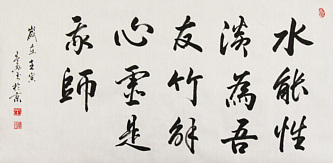 水能性
淡為吾
友竹解
心靈是
我師
歲在壬寅
於京